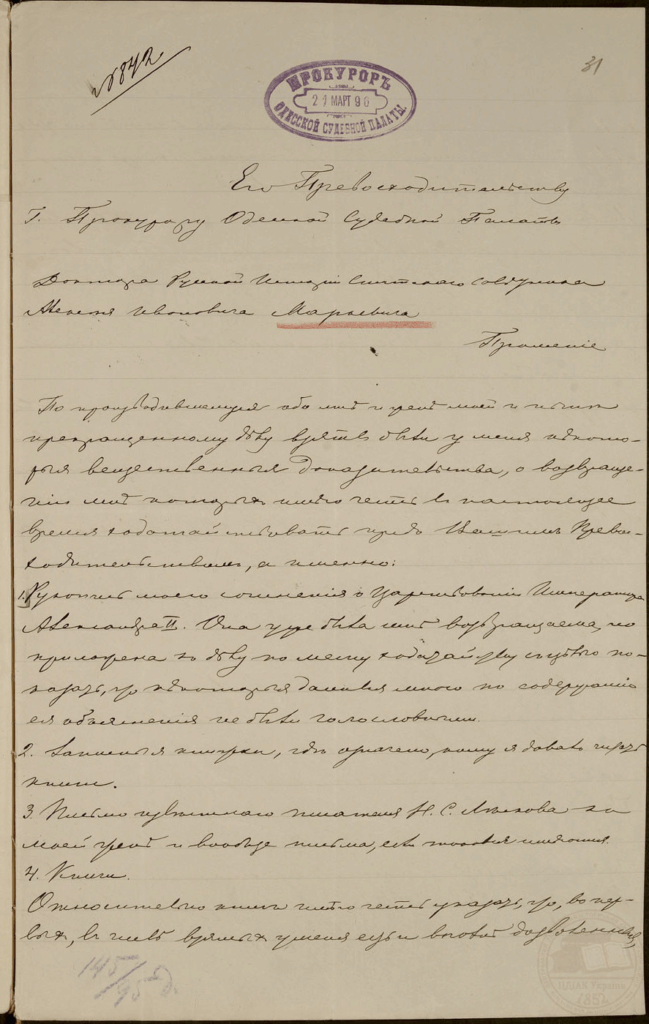 № 842
31
ПРОКУРОРЪ
21 МАРТ 90
ОДЕССКОЙ СУДЕБНОЙ ПАЛАТЫ.
Его Превосходительству
Г. Прокурору Одесской Судебной Палаты
Доктора Русской Исторіи Статскаго Совѣтника
Алексѣя Ивановича Маркевича
Прошеніе
По производившемуся обо мнѣ и женѣ моей и нынѣ
прекращенному дѣлу взяты были у меня нѣкото-
рыя вещественныя доказательства, о возвраще-
ніи мнѣ которыхъ имѣю честь въ настоящее
время ходатайствовать предъ Вашимъ Превос-
ходительствомъ, а именно:
1. Рукопись моего сочиненія о Царствованіи Императора
Александра II. Она уже была мнѣ возвращаема, но
приложена къ дѣлу по моему ходатайству съ цѣлью по-
казать, что нѣкоторыя данныя мною по содержанію
ея объясненія не были голословными.
2. Записныя книжки, гдѣ означено, кому я давалъ читать
книги.
3. Письмо извѣстнаго писателя Н. С. Лѣскова къ
моей женѣ и вообще письма, если таковыя имѣются.
4. Книги.
Относительно книгъ имѣю честь указать, что, во пер-
выхъ, въ числѣ взятыхъ у меня есть и вполнѣ дозволенныя,
145/95 д.
ЦДІАК України
1852